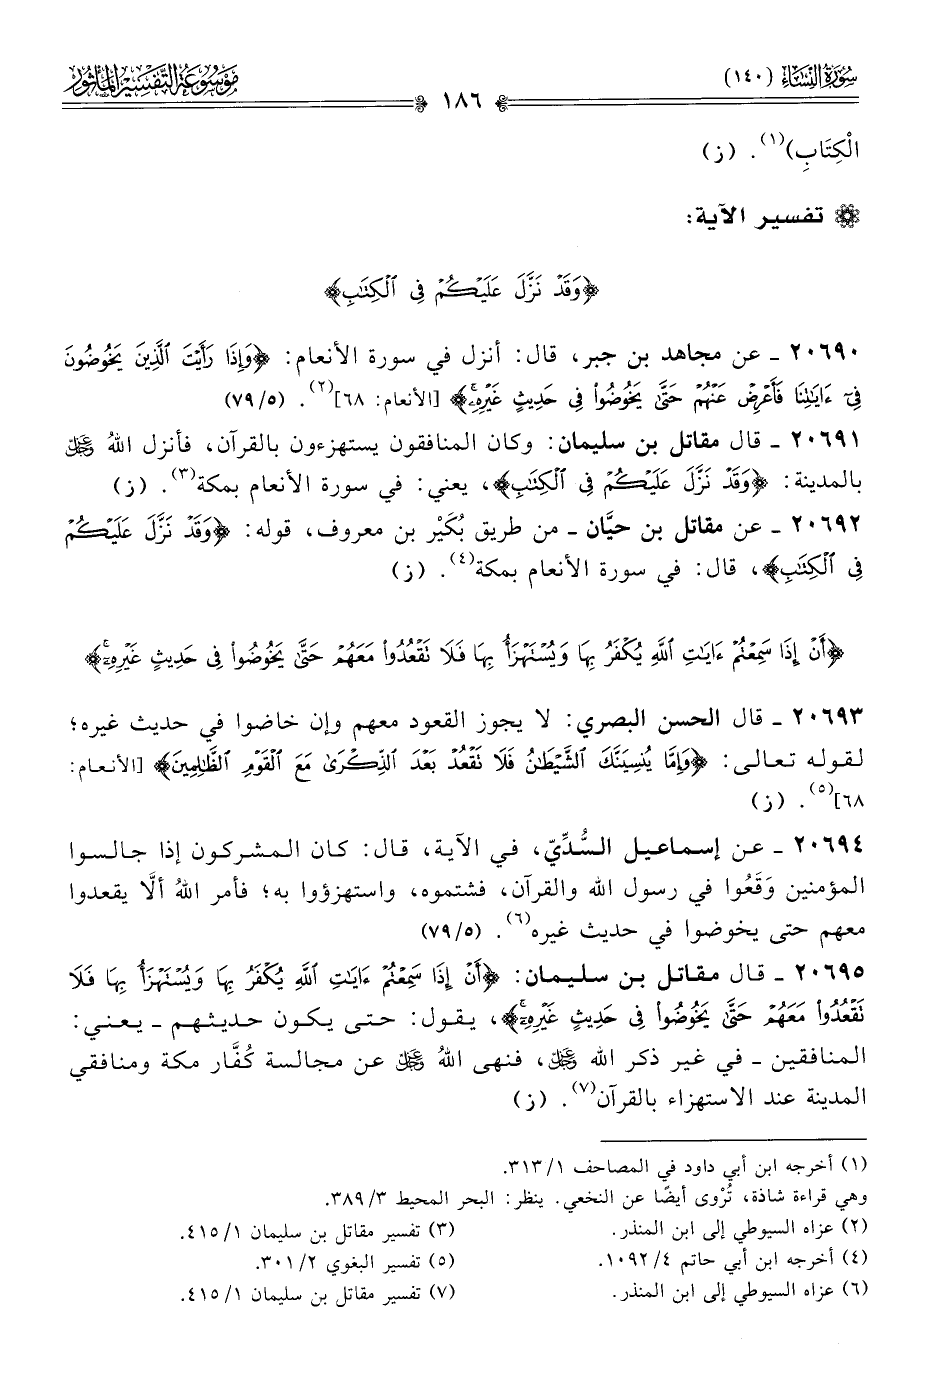 سُورَةُ النِّسَاءِ (١٤٠)
مَوْسُوعَةُ التَّفْسِيرِ المَأْثُورِ
١٨٦
الْكِتَابِ)(١). (ز)
تفسير الآية:
﴿وَقَدْ نَزَّلَ عَلَيْكُمْ فِى ٱلْكِتَٰبِ﴾
٢٠٦٩٠ ـ عن مجاهد بن جبر، قال: أنزل في سورة الأنعام: ﴿وَإِذَا رَأَيْتَ ٱلَّذِينَ يَخُوضُونَ
فِىٓ ءَايَٰتِنَا فَأَعْرِضْ عَنْهُمْ حَتَّىٰ يَخُوضُوا۟ فِى حَدِيثٍ غَيْرِهِۦ﴾ [الأنعام: ٦٨](٢). (٧٩/٥)
٢٠٦٩١ ـ قال مقاتل بن سليمان: وكان المنافقون يستهزءون بالقرآن، فأنزل اللهُ ﷻ
بالمدينة: ﴿وَقَدْ نَزَّلَ عَلَيْكُمْ فِى ٱلْكِتَٰبِ﴾، يعني: في سورة الأنعام بمكة(٣). (ز)
٢٠٦٩٢ ـ عن مقاتل بن حيَّان ـ من طريق بُكَيْر بن معروف، قوله: ﴿وَقَدْ نَزَّلَ عَلَيْكُمْ
فِى ٱلْكِتَٰبِ﴾، قال: في سورة الأنعام بمكة(٤). (ز)
﴿أَنْ إِذَا سَمِعْتُمْ ءَايَٰتِ ٱللَّهِ يُكْفَرُ بِهَا وَيُسْتَهْزَأُ بِهَا فَلَا تَقْعُدُوا۟ مَعَهُمْ حَتَّىٰ يَخُوضُوا۟ فِى حَدِيثٍ غَيْرِهِۦٓ﴾
٢٠٦٩٣ ـ قال الحسن البصري: لا يجوز القعود معهم وإن خاضوا في حديث غيره؛
لقوله تعالى: ﴿وَإِمَّا يُنسِيَنَّكَ ٱلشَّيْطَٰنُ فَلَا تَقْعُدْ بَعْدَ ٱلذِّكْرَىٰ مَعَ ٱلْقَوْمِ ٱلظَّٰلِمِينَ﴾ [الأنعام:
٦٨](٥). (ز)
٢٠٦٩٤ ـ عن إسماعيل السُّدِّيّ، في الآية، قال: كان المشركون إذا جالسوا
المؤمنين وَقَعُوا في رسول الله والقرآن، فشتموه، واستهزؤوا به؛ فأمر اللهُ ألَّا يقعدوا
معهم حتى يخوضوا في حديث غيره(٦). (٧٩/٥)
٢٠٦٩٥ ـ قال مقاتل بن سليمان: ﴿أَنْ إِذَا سَمِعْتُمْ ءَايَٰتِ ٱللَّهِ يُكْفَرُ بِهَا وَيُسْتَهْزَأُ بِهَا فَلَا
تَقْعُدُوا۟ مَعَهُمْ حَتَّىٰ يَخُوضُوا۟ فِى حَدِيثٍ غَيْرِهِۦٓ﴾، يقول: حتى يكون حديثهم ـ يعني:
المنافقين ـ في غير ذكر الله ﷻ، فنهى اللهُ ﷻ عن مجالسة كُفَّار مكة ومنافقي
المدينة عند الاستهزاء بالقرآن(٧). (ز)
(١) أخرجه ابن أبي داود في المصاحف ٣١٣/١.
وهي قراءة شاذة، تُرْوى أيضًا عن النخعي. ينظر: البحر المحيط ٣٨٩/٣.
(٢) عزاه السيوطي إلى ابن المنذر. (٣) تفسير مقاتل بن سليمان ٤١٥/١.
(٤) أخرجه ابن أبي حاتم ١٠٩٢/٤. (٥) تفسير البغوي ٣٠١/٢.
(٦) عزاه السيوطي إلى ابن المنذر. (٧) تفسير مقاتل بن سليمان ٤١٥/١.